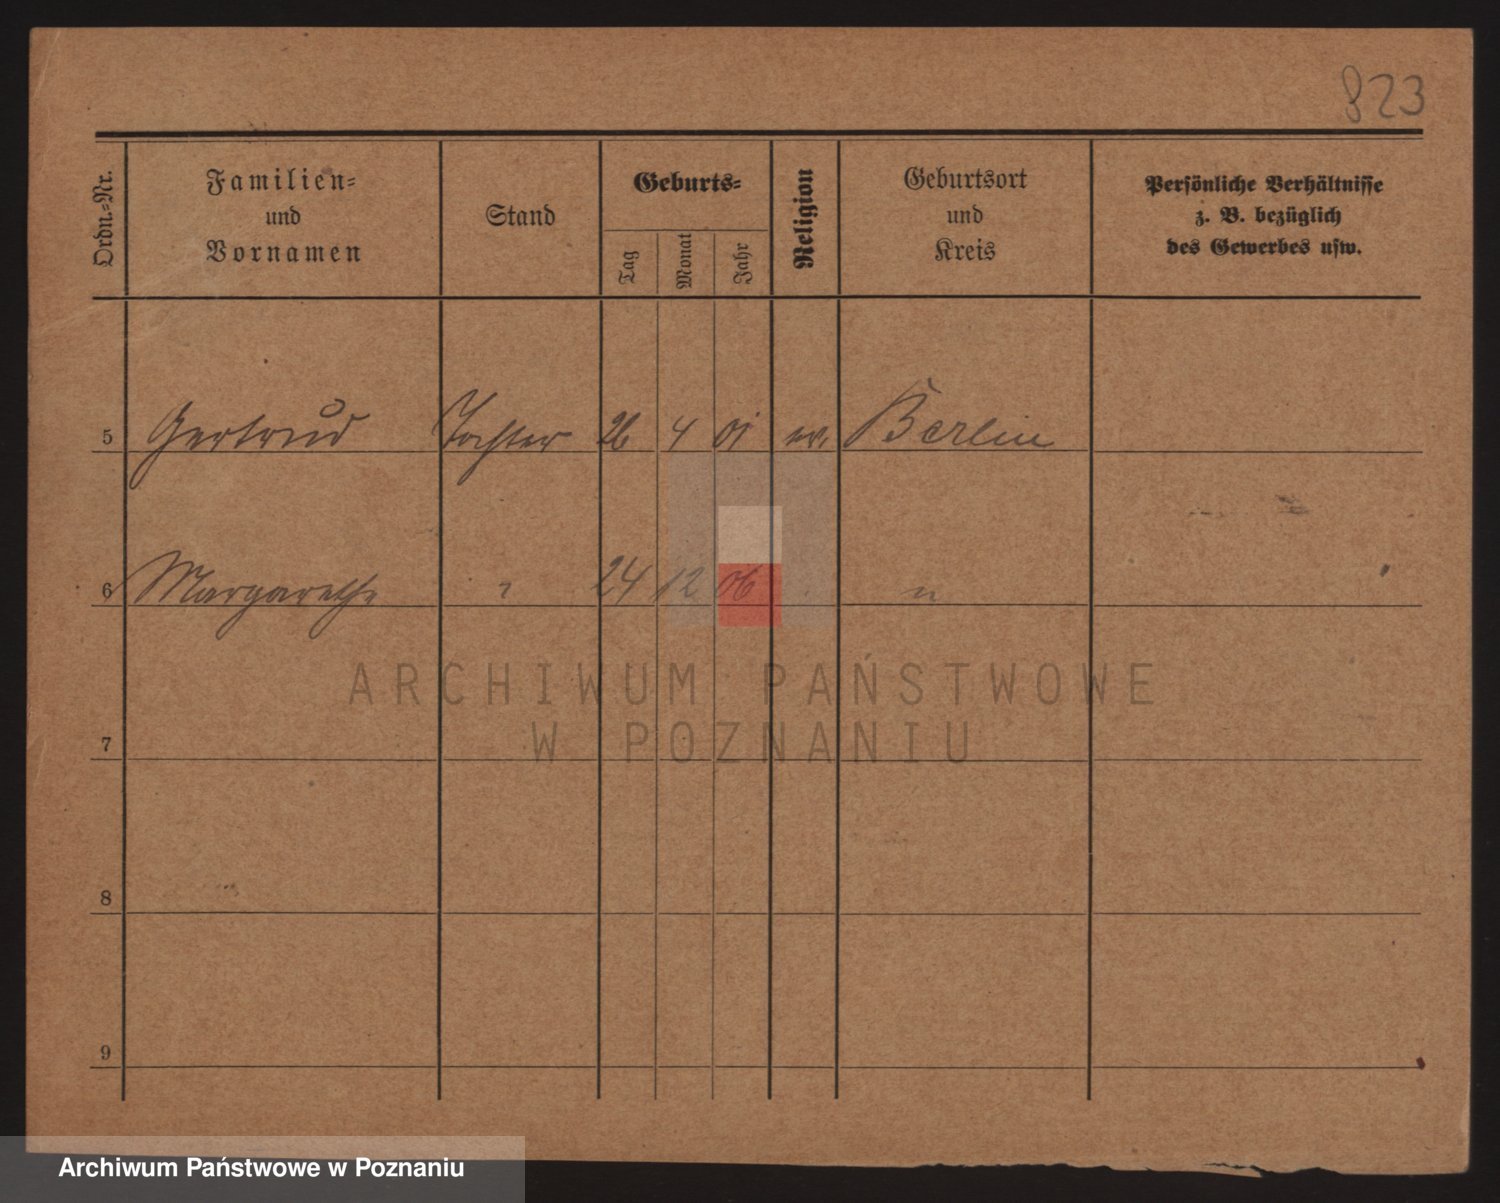 823
Ordn.-Nr.
Familien-
und
Vornamen
Stand
Geburts-
Tag
Monat
Jahr
Religion
Geburtsort
und
Kreis
Persönliche Verhältnisse
z. B. bezüglich
des Gewerbes usw.
5 Gertrud Tochter 26 4 01 ev. Berlin
6 Margarethe " 24 12 06 "
ARCHIWUM PAŃSTWOWE
W POZNANIU
7
8
9
Archiwum Państwowe w Poznaniu